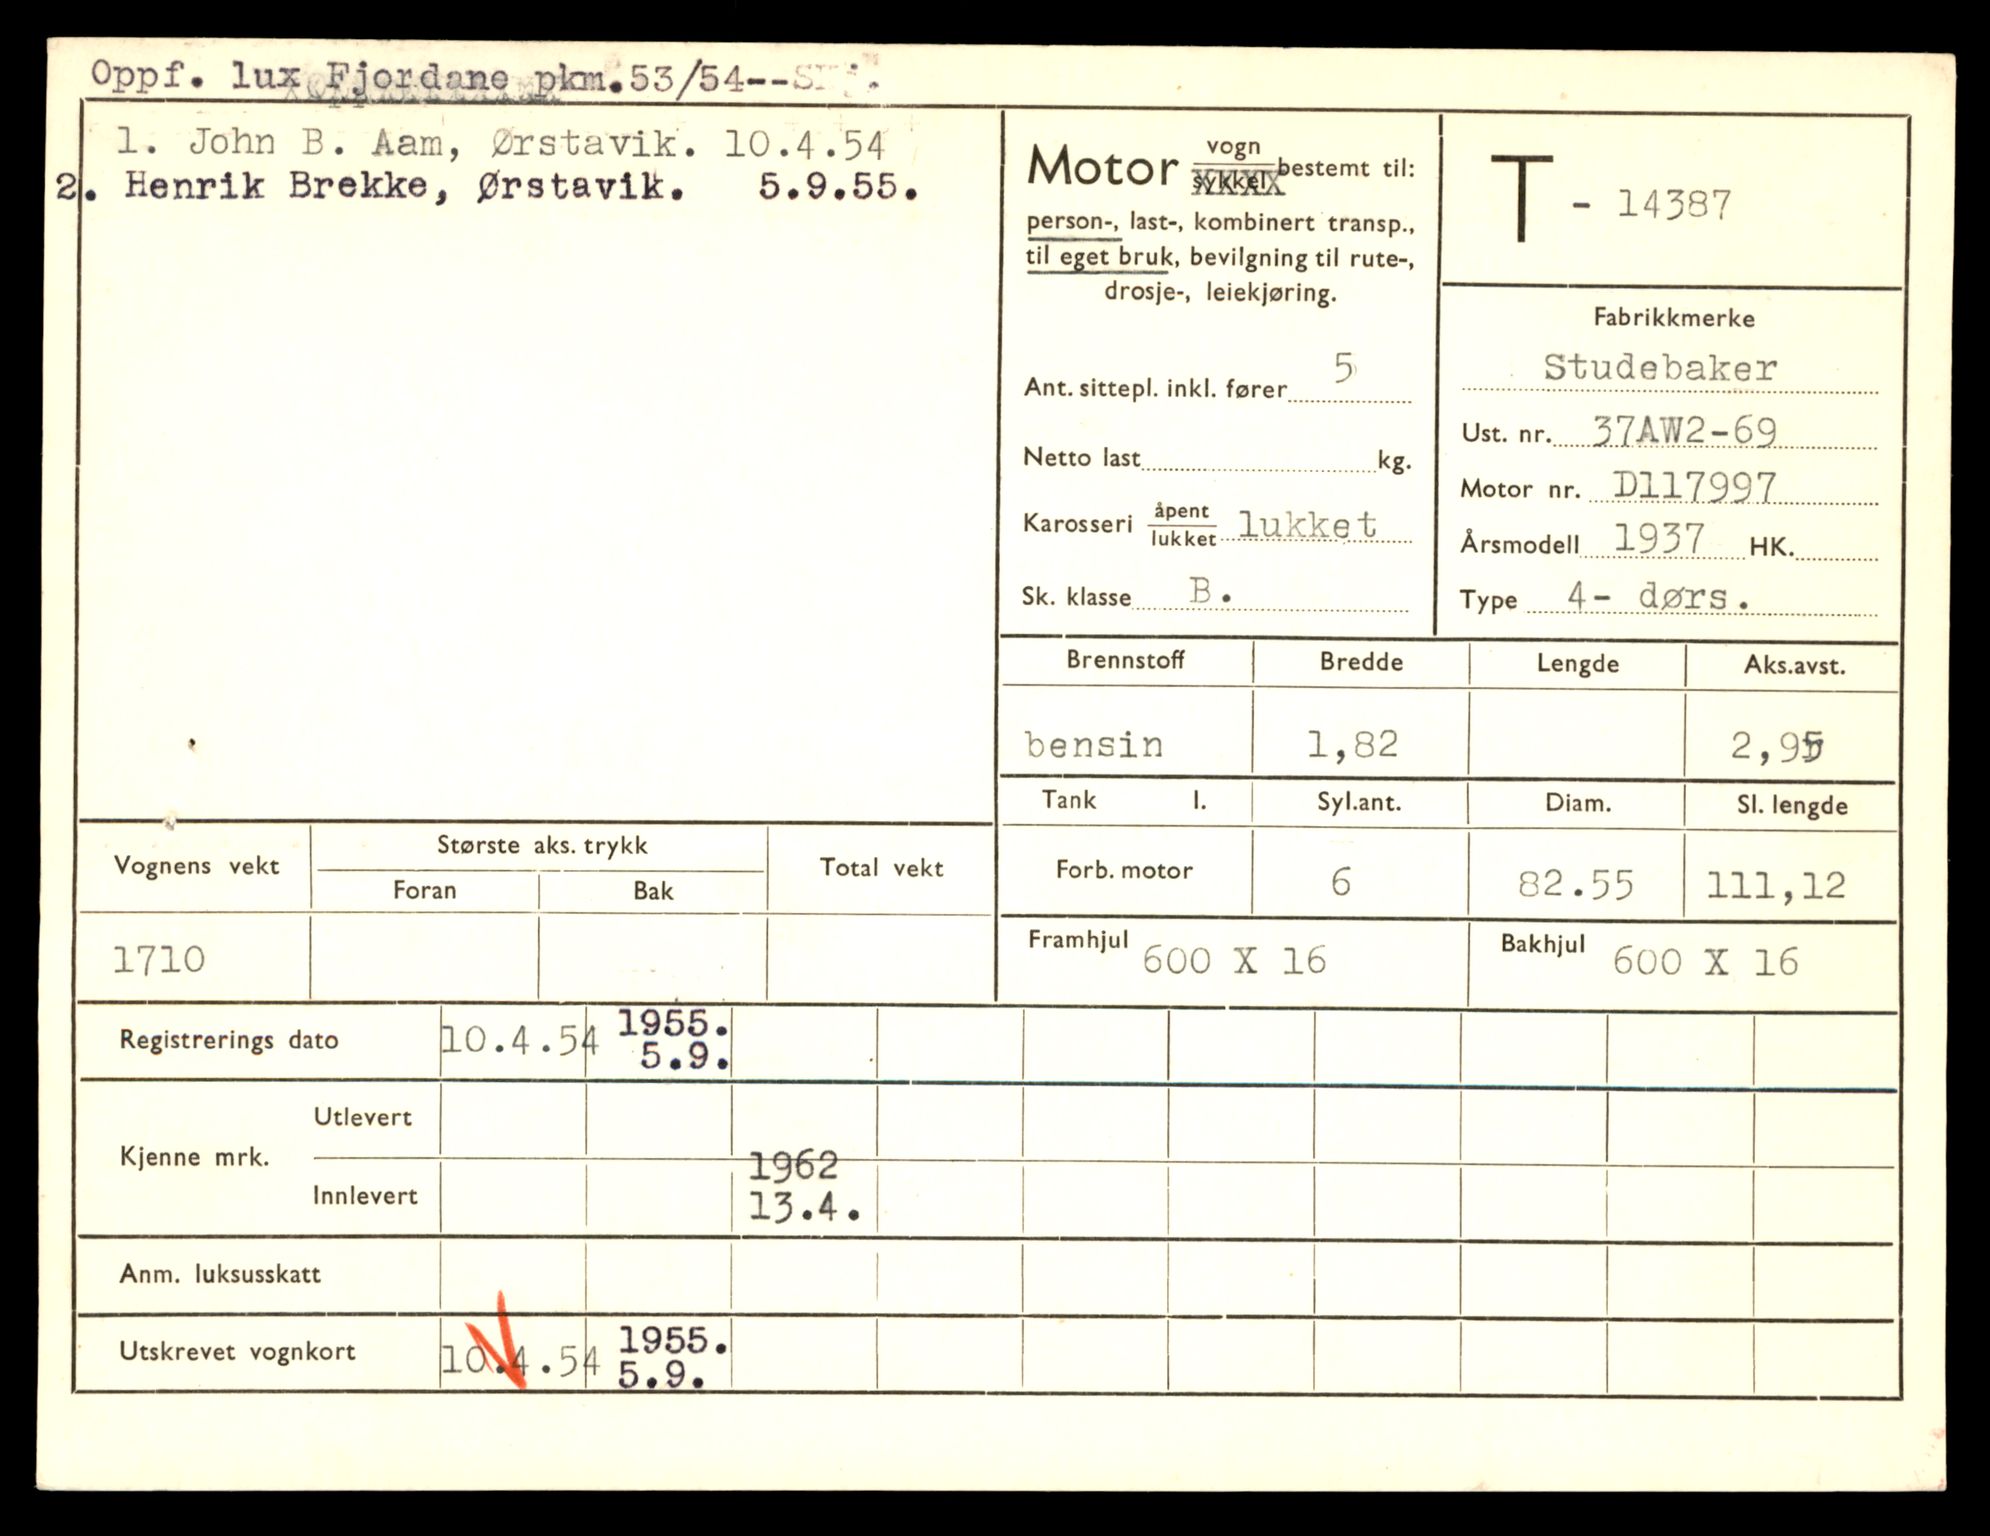 Oppf. lux Fjordane pkm.53/54--
1. John B. Aam, Ørstavik. 10.4.54
2. Henrik Brekke, Ørstavik. 5.9.55.
Motor vogn sykkel bestemt til:
person-, last-, kombinert transp.,
til eget bruk, bevilgning til rute-,
drosje-, leiekjøring.
Ant. sittepl. inkl. fører 5
Netto last kg.
Karosseri åpent lukket lukket
Sk. klasse B.
T - 14387
Fabrikkmerke
Studebaker
Ust. nr. 37AW2-69
Motor nr. D117997
Årsmodell 1937 HK.
Type 4- dørs.
Brennstoff Bredde Lengde Aks.avst.
bensin 1,82 2,95
Tank l. Syl.ant. Diam. Sl. lengde
Forb. motor 6 82.55 111,12
Framhjul 600 X 16 Bakhjul 600 X 16
Vognens vekt Største aks. trykk Total vekt
Foran Bak
1710
Registrerings dato 10.4.54 1955.
5.9.
Kjenne mrk. Utlevert
Innlevert 1962
13.4.
Anm. luksusskatt
Utskrevet vognkort 10.4.54 1955.
5.9.